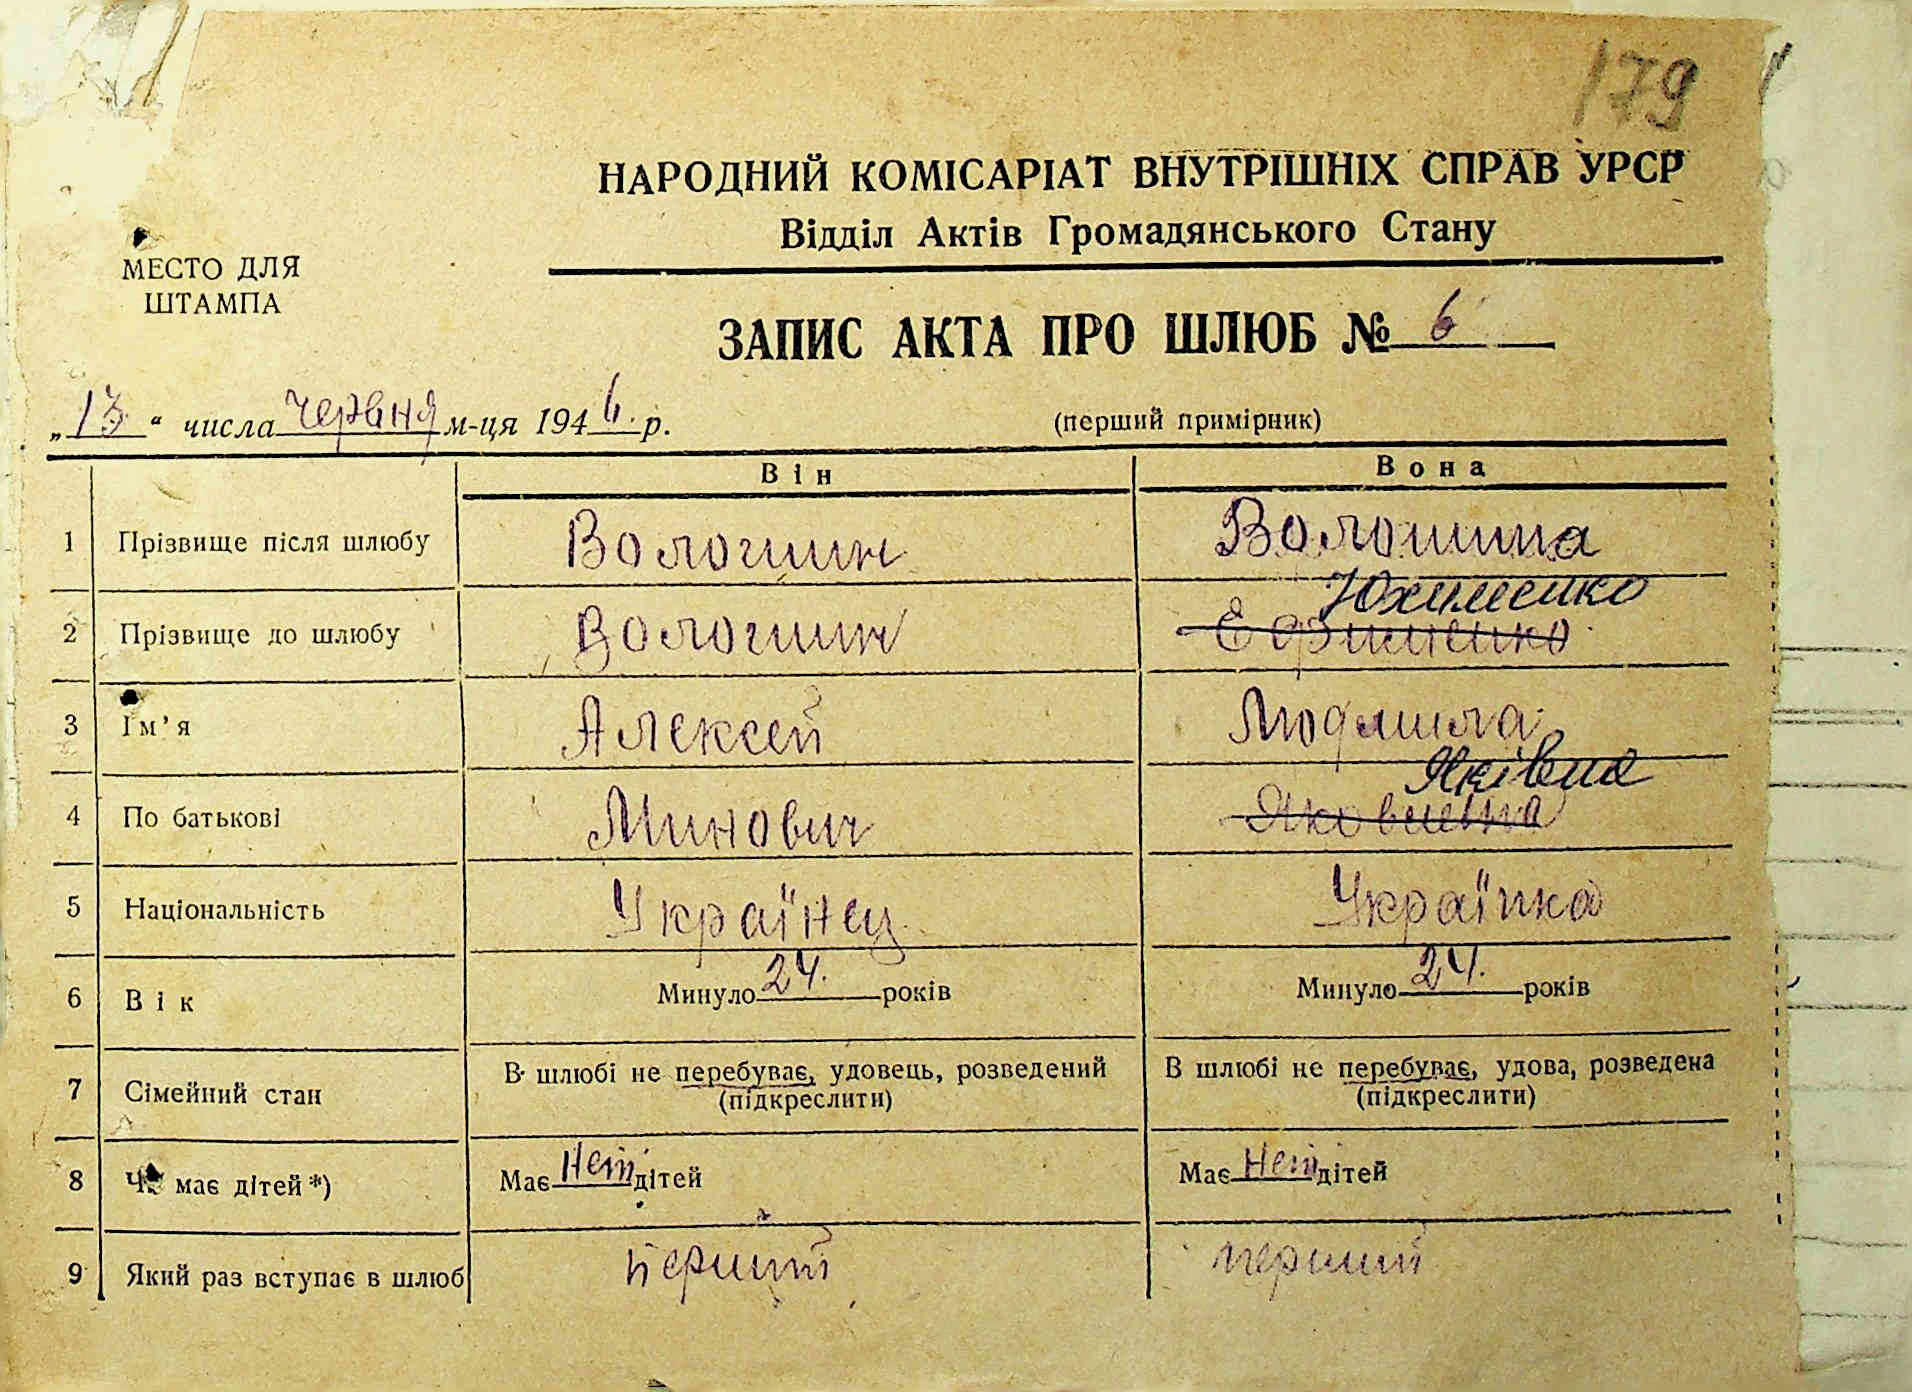 179
НАРОДНИЙ КОМІСАРІАТ ВНУТРІШНІХ СПРАВ УРСР
Відділ Актів Громадянського Стану
МЕСТО ДЛЯ
ШТАМПА
ЗАПИС АКТА ПРО ШЛЮБ № 6
„13“ числа червня м-ця 1946 р.
(перший примірник)
Він Вона
1 Прізвище після шлюбу Волошин Волошина
Юхименко
2 Прізвище до шлюбу Волошин Ефименко
3 Ім'я Алексей Людмила
Яківна
4 По батькові Минович Яковлевна
5 Національність Українец Українка
6 Вік Минуло 24. років Минуло 24. років
7 Сімейний стан В шлюбі не перебуває, удовець, розведений В шлюбі не перебуває, удова, розведена
(підкреслити) (підкреслити)
8 Чи має дітей*) Має Нет дітей Має Нет дітей
9 Який раз вступає в шлюб перший перший